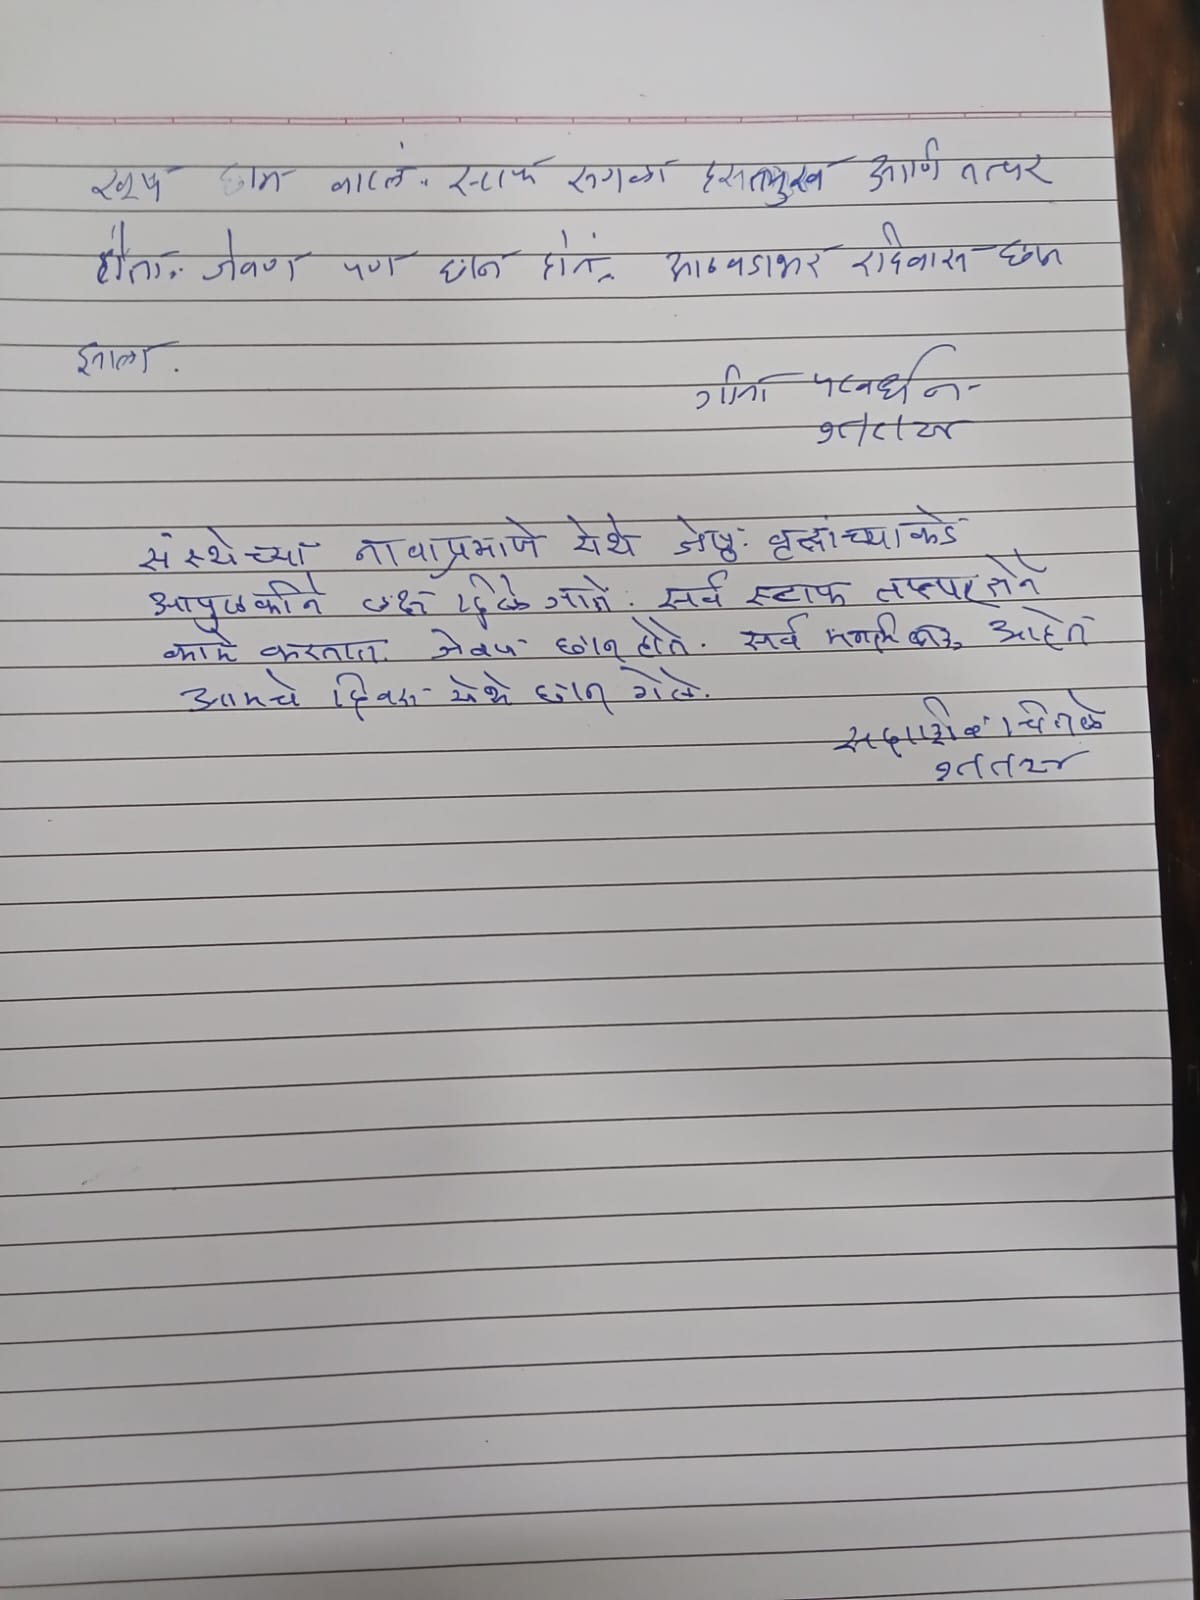 खूप छान वाटलं. स्टाफ सगळा हसतमुख आणि तत्पर
होता. जेवण पण छान होतं. आठवडाभर रहिवास छान
झाला.
गीता पटवर्धन
संस्थेच्या नावाप्रमाणे येथे जेष्ठ वृद्धांच्याकडे
आपुलकीने लक्ष दिले जाते. सर्व स्टाफ तत्परतेने
कामे करतात. जेवण छान होते. सर्व आहेत
आमचे दिवस येथे छान गेले.
चितळे